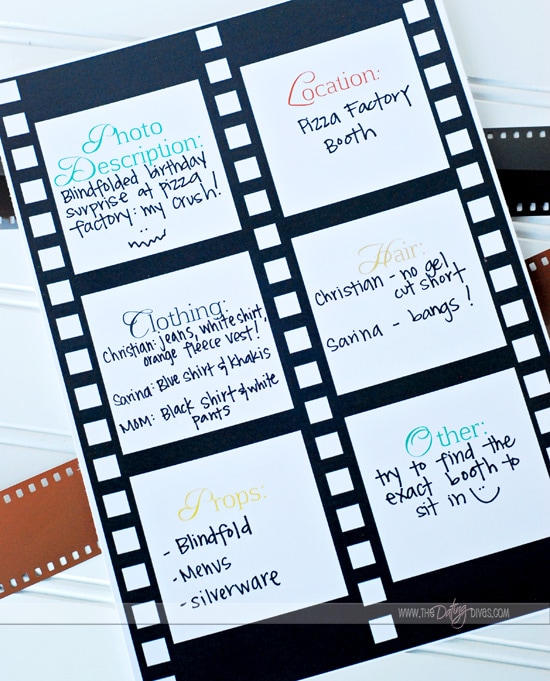 Photo
Description:
Blindfolded birthday
surprise at pizza
factory: my crush!
Location:
Pizza Factory
Booth
Clothing:
Christian: jeans, white shirt,
orange fleece vest!
Sarina: Blue shirt & khakis
Mom: Black shirt & white
pants
Hair:
Christian - no gel
cut short
Sarina - bangs!
Props:
- Blindfold
- Menus
- silverware
Other:
try to find the
exact booth to
sit in
WWW.THE Dating DIVAS.COM